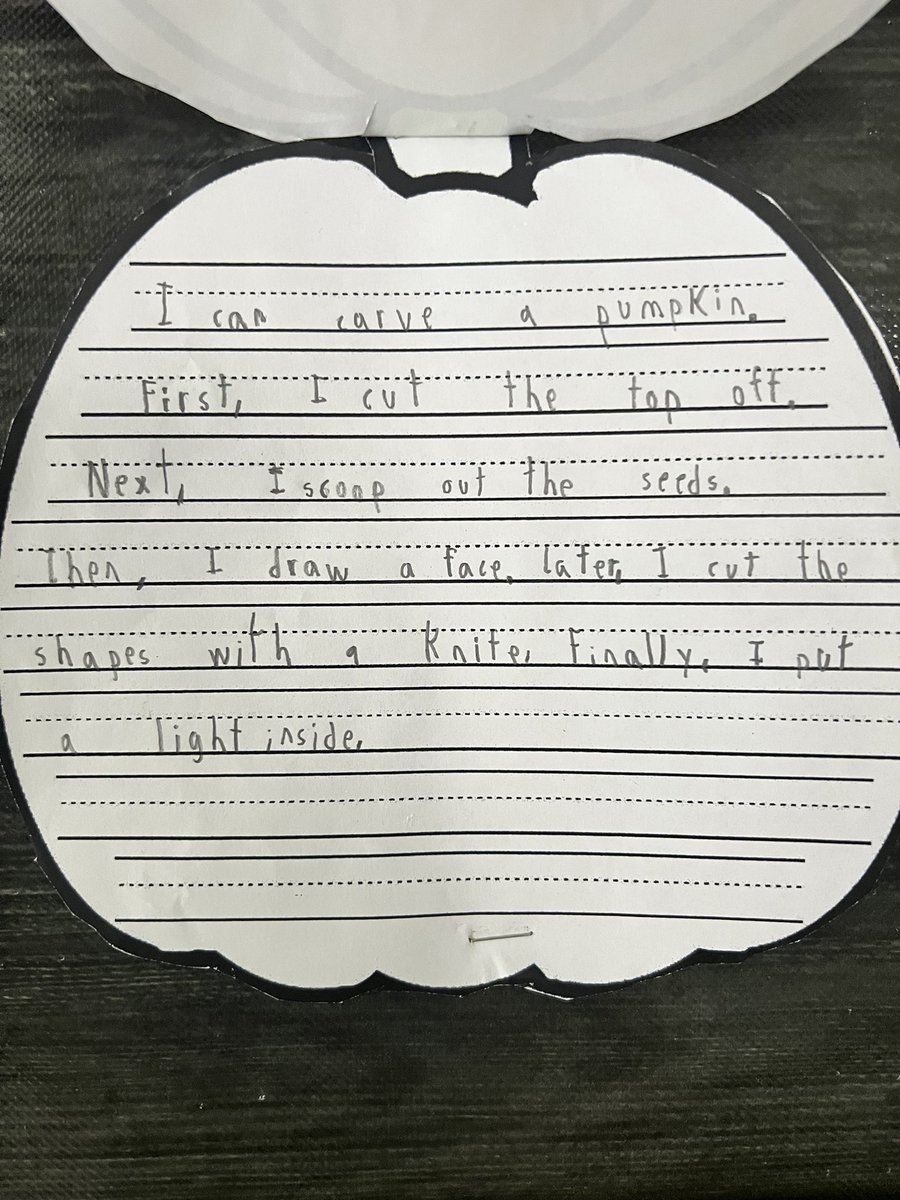 I can carve a pumpkin.
First, I cut the top off.
Next, I scoop out the seeds.
Then, I draw a face. later, I cut the
shapes with a knife. Finally, I put
a light inside.